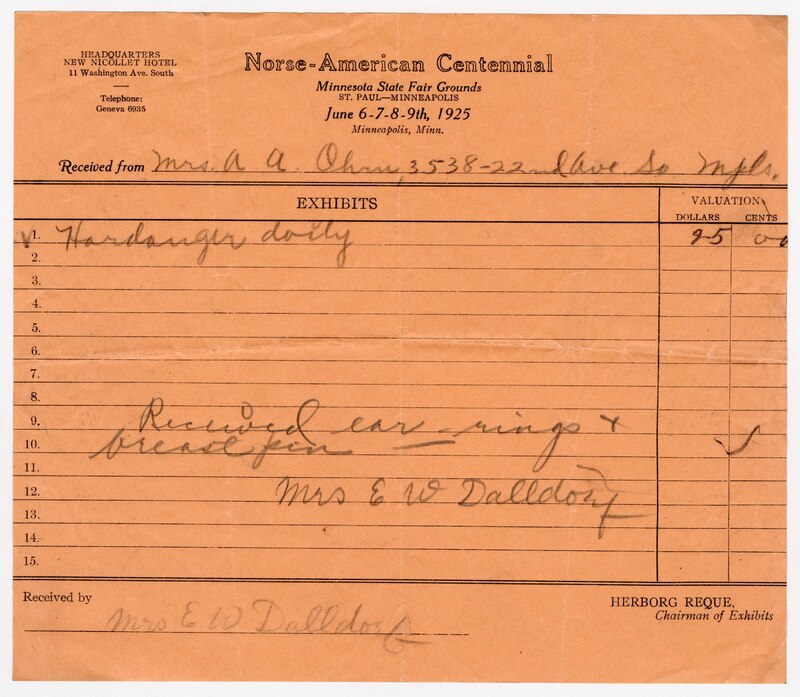 HEADQUARTERS
NEW NICOLLET HOTEL
11 Washington Ave. South
Telephone:
Geneva 6935
Norse-American Centennial
Minnesota State Fair Grounds
ST. PAUL—MINNEAPOLIS
June 6-7-8-9th, 1925
Minneapolis, Minn.
Received from Mrs. A A. Ohrn, 3538-22nd Ave. So Mpls.
EXHIBITS
VALUATION
DOLLARS CENTS
1. Hardanger doily 25 00
2.
3.
4.
5.
6.
7.
8.
9. Received ear-rings +
10. breast pin
11.
12. Mrs E W Dalldorf
13.
14.
15.
Received by Mrs E W Dalldorf
HERBORG REQUE,
Chairman of Exhibits